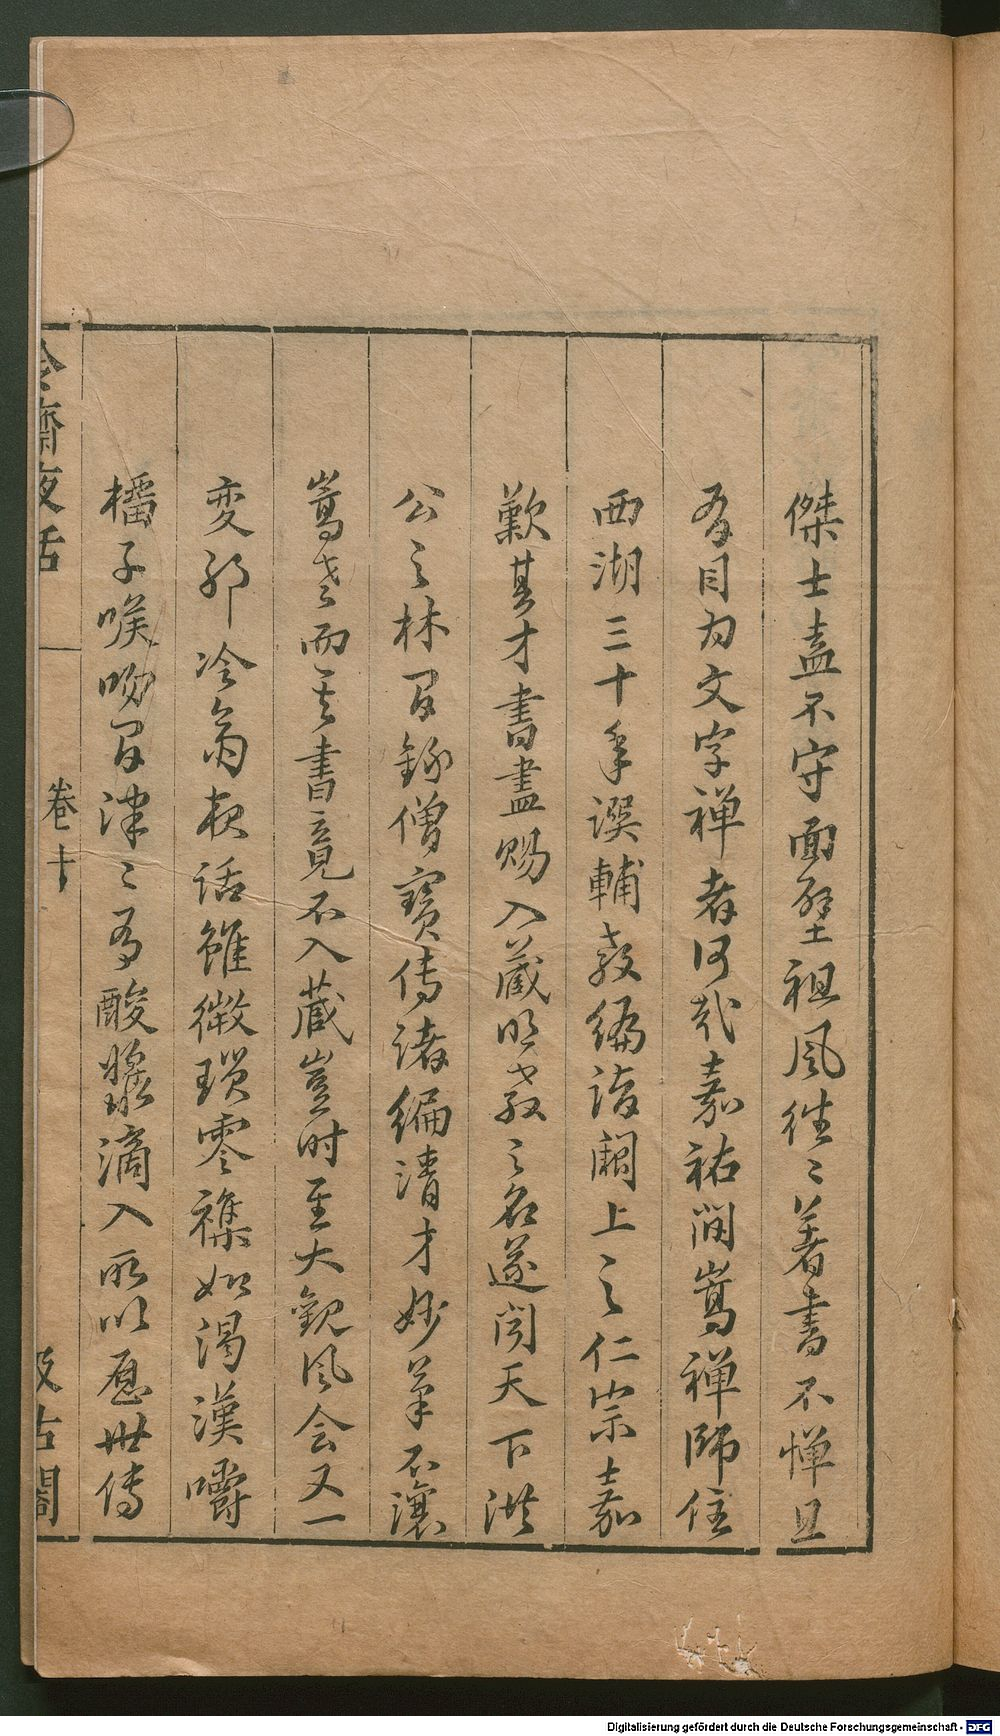 傑士盍不守面壁祖風徃〻著書不憚且
有目为文字禅者何㢤嘉祐间嵩禅師住
西湖三十年譔輔教編詣闕上之仁宗嘉
歎其才書盡赐入蔵明教之名遂闻天下洪
公之林间録僧寳传诸编清才妙筆不讓
嵩老而其書竟不入蔵豈时至大観风会又一
变耶冷斋夜话雖微瑣零襍如渴漢嚼
橘子喉吻间津〻有酸漿滴入所以慿世传
冷齋夜話
卷十
汲古閣
Digitalisierung gefördert durch die Deutsche Forschungsgemeinschaft - DFG